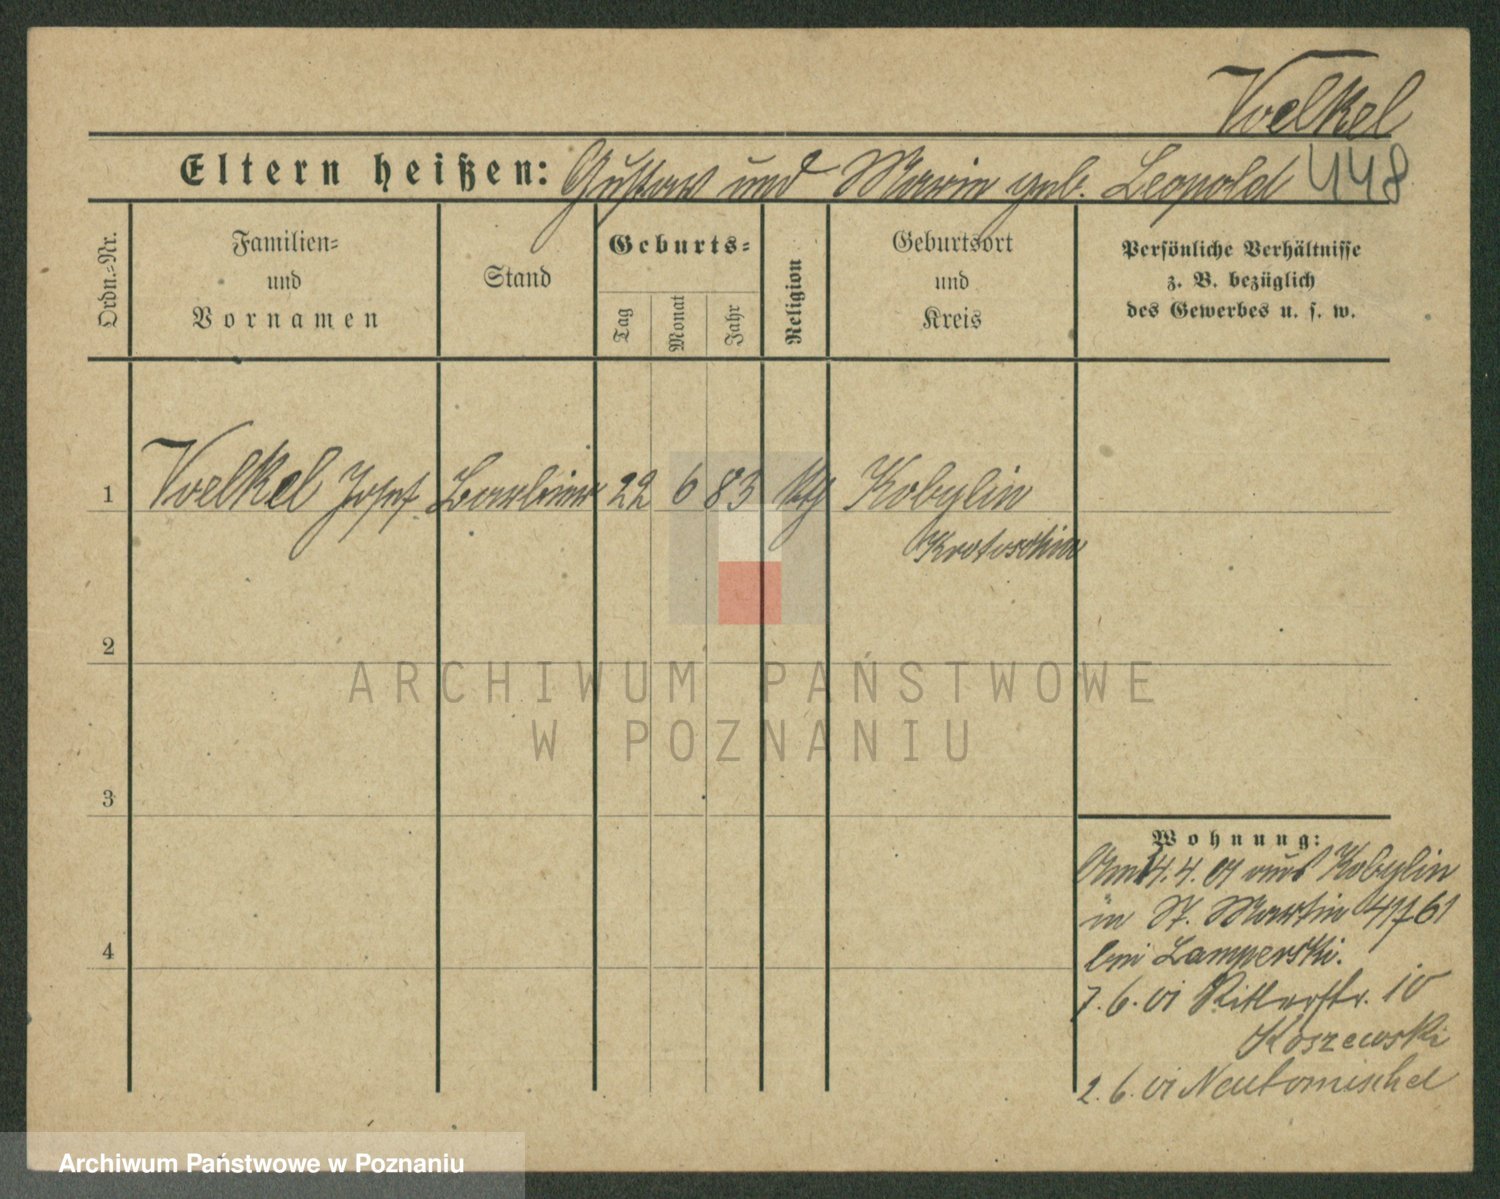 Voelkel
Eltern heißen: Gustav und Marie geb. Leopold 448
Ordn.=Nr.
Familien=
und
Vornamen
Stand
Geburts=
Tag
Monat
Jahr
Religion
Geburtsort
und
Kreis
Persönliche Verhältnisse
z. B. bezüglich
des Gewerbes u. s. w.
1 Voelkel Josef Barbier 22 6 83 Kobylin
Krotoschin
2
3
4
ARCHIWUM PAŃSTWOWE
W POZNANIU
Wohnung:
4.4.01 aus Kobylin
in St. Martin
bei Lamperski.
7.6.01 Ritterstr. 10
Koszewski
2.6.01 Neutomischel
Archiwum Państwowe w Poznaniu